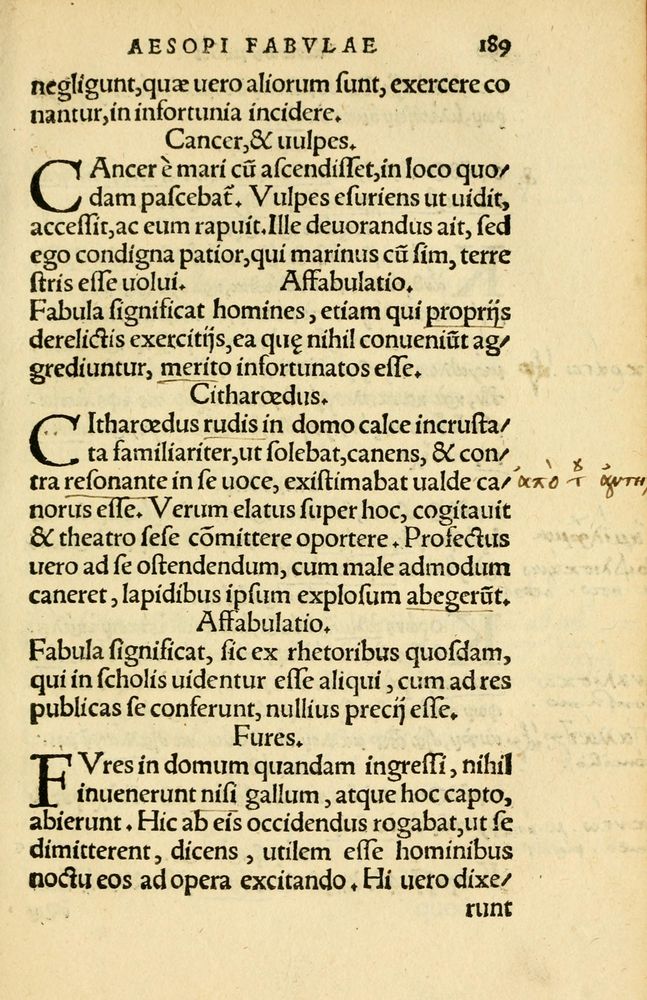 AESOPI FABVLAE 189
negligunt,quæ uero aliorum ſunt, exercere co
nantur,in infortunia incidere.
Cancer,& uulpes.
CAncer è mari cū aſcendiſſet,in loco quo/
dam paſcebat̃. Vulpes eſuriens ut uidit,
acceſſit,ac eum rapuit.Ille deuorandus ait, ſed
ego condigna patior,qui marinus cū ſim, terre
ſtris eſſe uolui. Affabulatio.
Fabula ſignificat homines, etiam qui proprijs
derelictis exercitijs,ea quę nihil conueniũt ag/
grediuntur, merito infortunatos eſſe.
Citharœdus.
CItharœdus rudis in domo calce incruſta/
ta familiariter,ut ſolebat,canens, & con/
tra reſonante in ſe uoce, exiſtimabat ualde ca/
norus eſſe. Verum elatus ſuper hoc, cogitauit
& theatro ſeſe cōmittere oportere. Profectus
uero ad ſe oſtendendum, cum male admodum
caneret, lapidibus ipſum exploſum abegerũt.
Affabulatio.
Fabula ſignificat, ſic ex rhetoribus quoſdam,
qui in ſcholis uidentur eſſe aliqui, cum ad res
publicas ſe conferunt, nullius precij eſſe.
Fures.
FVres in domum quandam ingreſſi, nihil
inuenerunt niſi gallum, atque hoc capto,
abierunt. Hic ab eis occidendus rogabat,ut ſe
dimitterent, dicens, utilem eſſe hominibus
noctu eos ad opera excitando. Hi uero dixe/
runt
ἀπὸ